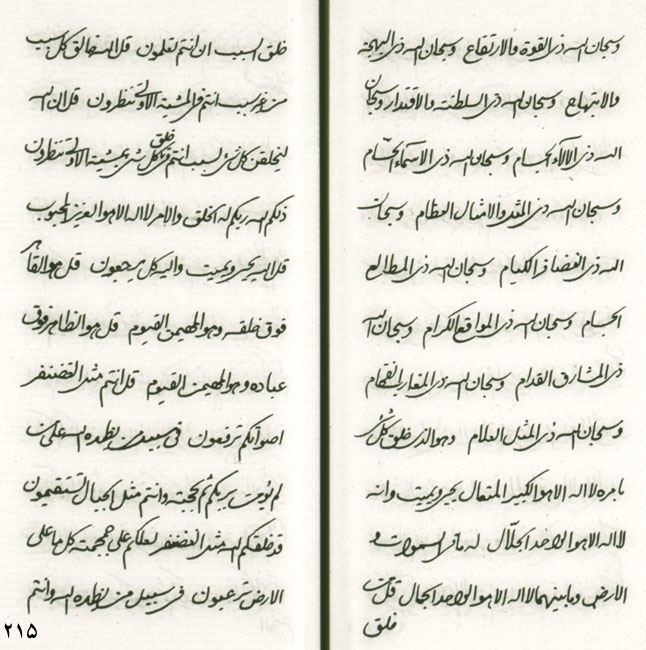 وسبحان الله ذی القوة والارتفاع وسبحان الله ذی البهجة
والابتهاج وسبحان الله ذی السلطنة والاقتدار وسبحان
الله ذی الالآء الجسام وسبحان الله ذی الاسمآء
وسبحان الله ذی المثل والامثال العظام وسبحان
الله ذی وسبحان الله ذی المطالع
الجسام وسبحان الله ذی المواقع الکرام وسبحان الله
ذی المشارق القدام وسبحان الله ذی المغارب
وسبحان الله ذی المثل العلام وهو الذی خلق کل شئ
بامره لا اله الا هو الکبیر المتعال یحیی ویمیت وانه
لا اله الا هو الواحد الجلال له ما فی السموات و
الارض وما بینهما لا اله الا هو الواحد الجمال قل من
خلق
خلق السبب ان انتم تعلمون قل الله خالق کل سبب
من غیر سبب انتم فی المشیة الاولی تنظرون قل ان الله
لیخلقن کل شئ بسبب انتم فی خلق کل شئ بمشیته الاولی تنظرون
ذلکم الله ربکم له الخلق والامر لا اله الا هو العزیز المحبوب
قل الله یحیی ویمیت والیه کل یرجعون قل هو القاهر
فوق خلقه وهو المهیمن القیوم قل هو الظاهر فوق
عباده وهو المهیمن القیوم قل انتم مثل الغضنفر
اصواتکم ترفعون فی سبیل من یظهره الله علی من
لم یؤمن بربکم ثم بحجته وانتم مثل الجبال لتستقیمون
قد خلقکم الله مثل الغضنفر لعلکم علی جمجمته کل ما علی
الارض ترعبون فی سبیل من یظهره الله وانتم
٢١٥